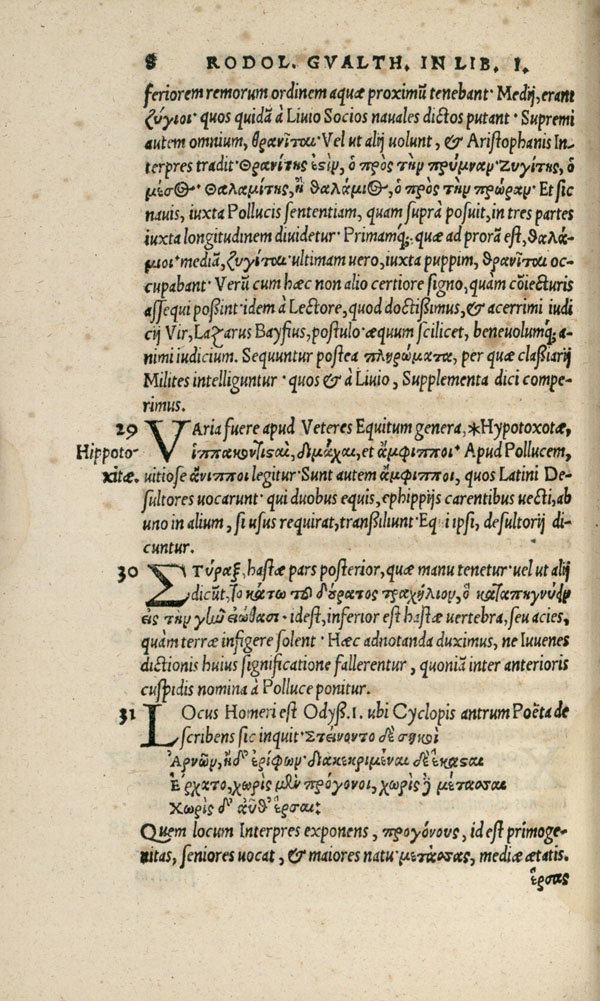 8 RODOL. GVALTH. IN LIB. I.
feriorem remorum ordinem aquæ proximũ tenebant· Medij, erant
ζύγιοι· quos quidã à Liuio Socios nauales dictos putant· Supremi
autem omnium, θρανῖται· Vel ut alij uolunt, & Aristophanis In-
terpres tradit· Θρανίτης ἐςὶν, ὁ πρὸς τὴν πρύμναν· Ζυγίτης, ὁ
μέσος· Θαλαμίτης, ἢ θαλάμιος, ὁ πρὸς τὴν πρώραν· Et sic
nauis, iuxta Pollucis sententiam, quam suprà posuit, in tres partes
iuxta longitudinem diuidetur· Primamq́; quæ ad prorã est, θαλά-
μιοι· mediã, ζυγίται· ultimam uero, iuxta puppim, θρανῖται oc-
cupabant· Verũ cum hæc non alio certiore signo, quàm cõiecturis
assequi poßint· idem à Lectore, quod doctißimus, & acerrimi iudi
cij Vir, Lazarus Bayfius, postulo· æquum scilicet, beneuolumq́; a-
nimi iudicium. Sequuntur postea πληρώματα, per quæ claßiarij
Milites intelliguntur· quos & à Liuio, Supplementa dici compe-
rimus.
29 VAria fuere apud Veteres Equitum genera, *Hypotoxotæ,
Hippoto- ἱππακοντιςαὶ, διμάχαι, et ἄμφιπποι· Apud Pollucem,
xitæ. uitiose ἄνιπποι legitur· Sunt autem ἄμφιπποι, quos Latini De-
sultores uocarunt· qui duobus equis, ephippijs carentibus uecti, ab
uno in alium, si usus requirat, transiliunt· Eq i ipsi, desultorij di-
cuntur.
30 ΣΤύραξ, hastæ pars posterior, quæ manu tenetur· uel ut alij
dicũt, τὸ κάτω τοῦ δόρατος τραχήλιον, ὃ καταπηγνύειν
εἰς τὴν γῆν εἰώθασι· id est, inferior est hastæ uertebra, seu acies,
quàm terræ infigere solent· Hæc adnotanda duximus, ne Iuuenes
dictionis huius significatione fallerentur, quoniã inter anterioris
cuspidis nomina à Polluce ponitur.
31 LOcus Homeri est Odyß. 1. ubi Cyclopis antrum Poëta de
scribens sic inquit· Στείνοντο δὲ σηκοὶ
Ἀρνῶν, ἠδ' ἐρίφων· διακεκριμέναι δὲ ἕκαςαι
Ἔρχατο, χωρὶς μὲν πρόγονοι, χωρὶς δὲ μέτασσαι
Χωρὶς δ' αὖθ' ἕρσαι:
Quem locum Interpres exponens, προγόνους, id est primoge-
nitas, seniores uocat, & maiores natu· μετάσσας, mediæ ætatis.
ἕρσας